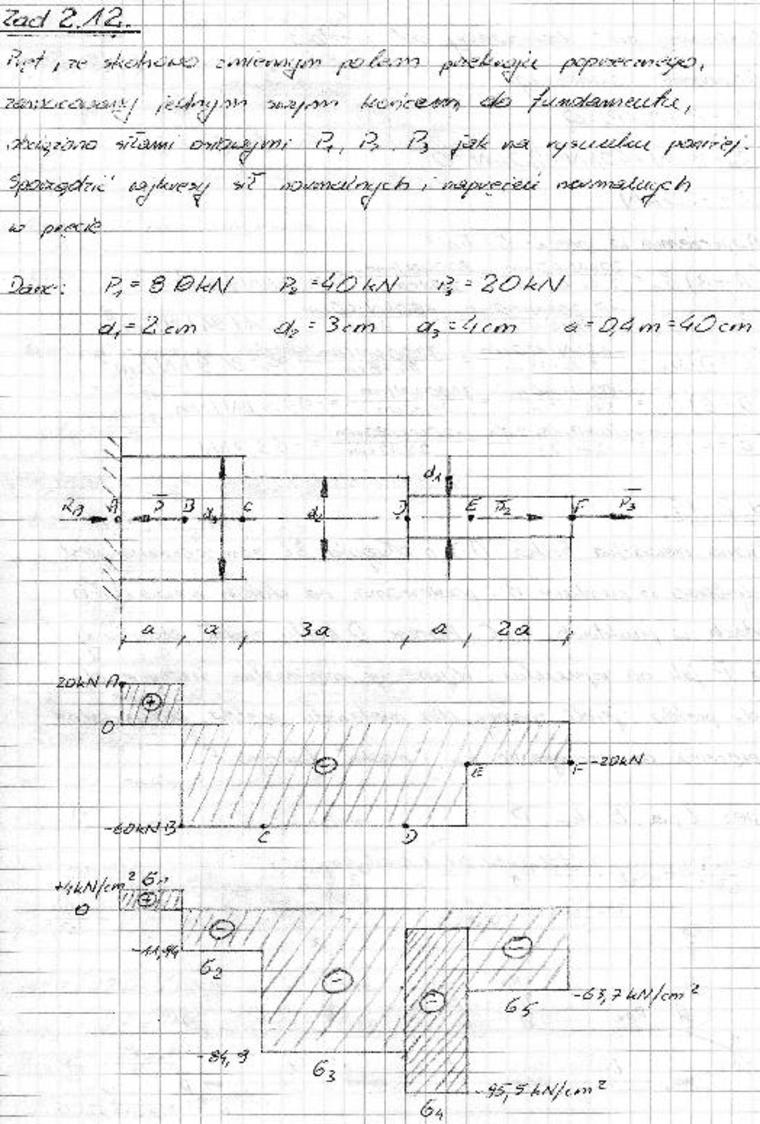 Zad 2.12.
Pręt, ze skokowo zmiennym polem przekroju poprzecznego,
zamocowany jednym swym końcem do fundamentu,
obciążono siłami osiowymi P₁, P₂, P₃ jak na rysunku poniżej.
Sporządzić wykresy sił normalnych i naprężeń normalnych
w pręcie
Dane: P₁ = 80kN P₂ = 40kN P₃ = 20kN
d₁ = 2cm d₂ = 3cm d₃ = 4cm a = 0,4m = 40cm
d₁
A P B d₃ C d₂ D E P₂ F P₃
a a 3a a 2a
20kN A
+
0
-
E F -20kN
-60kN B C D
+4kN/cm² б₁
0 +
-
-11,94
б₂
-
-
-
б₅ -63,7 kN/cm²
-84,9
б₃
-95,5 kN/cm²
б₄